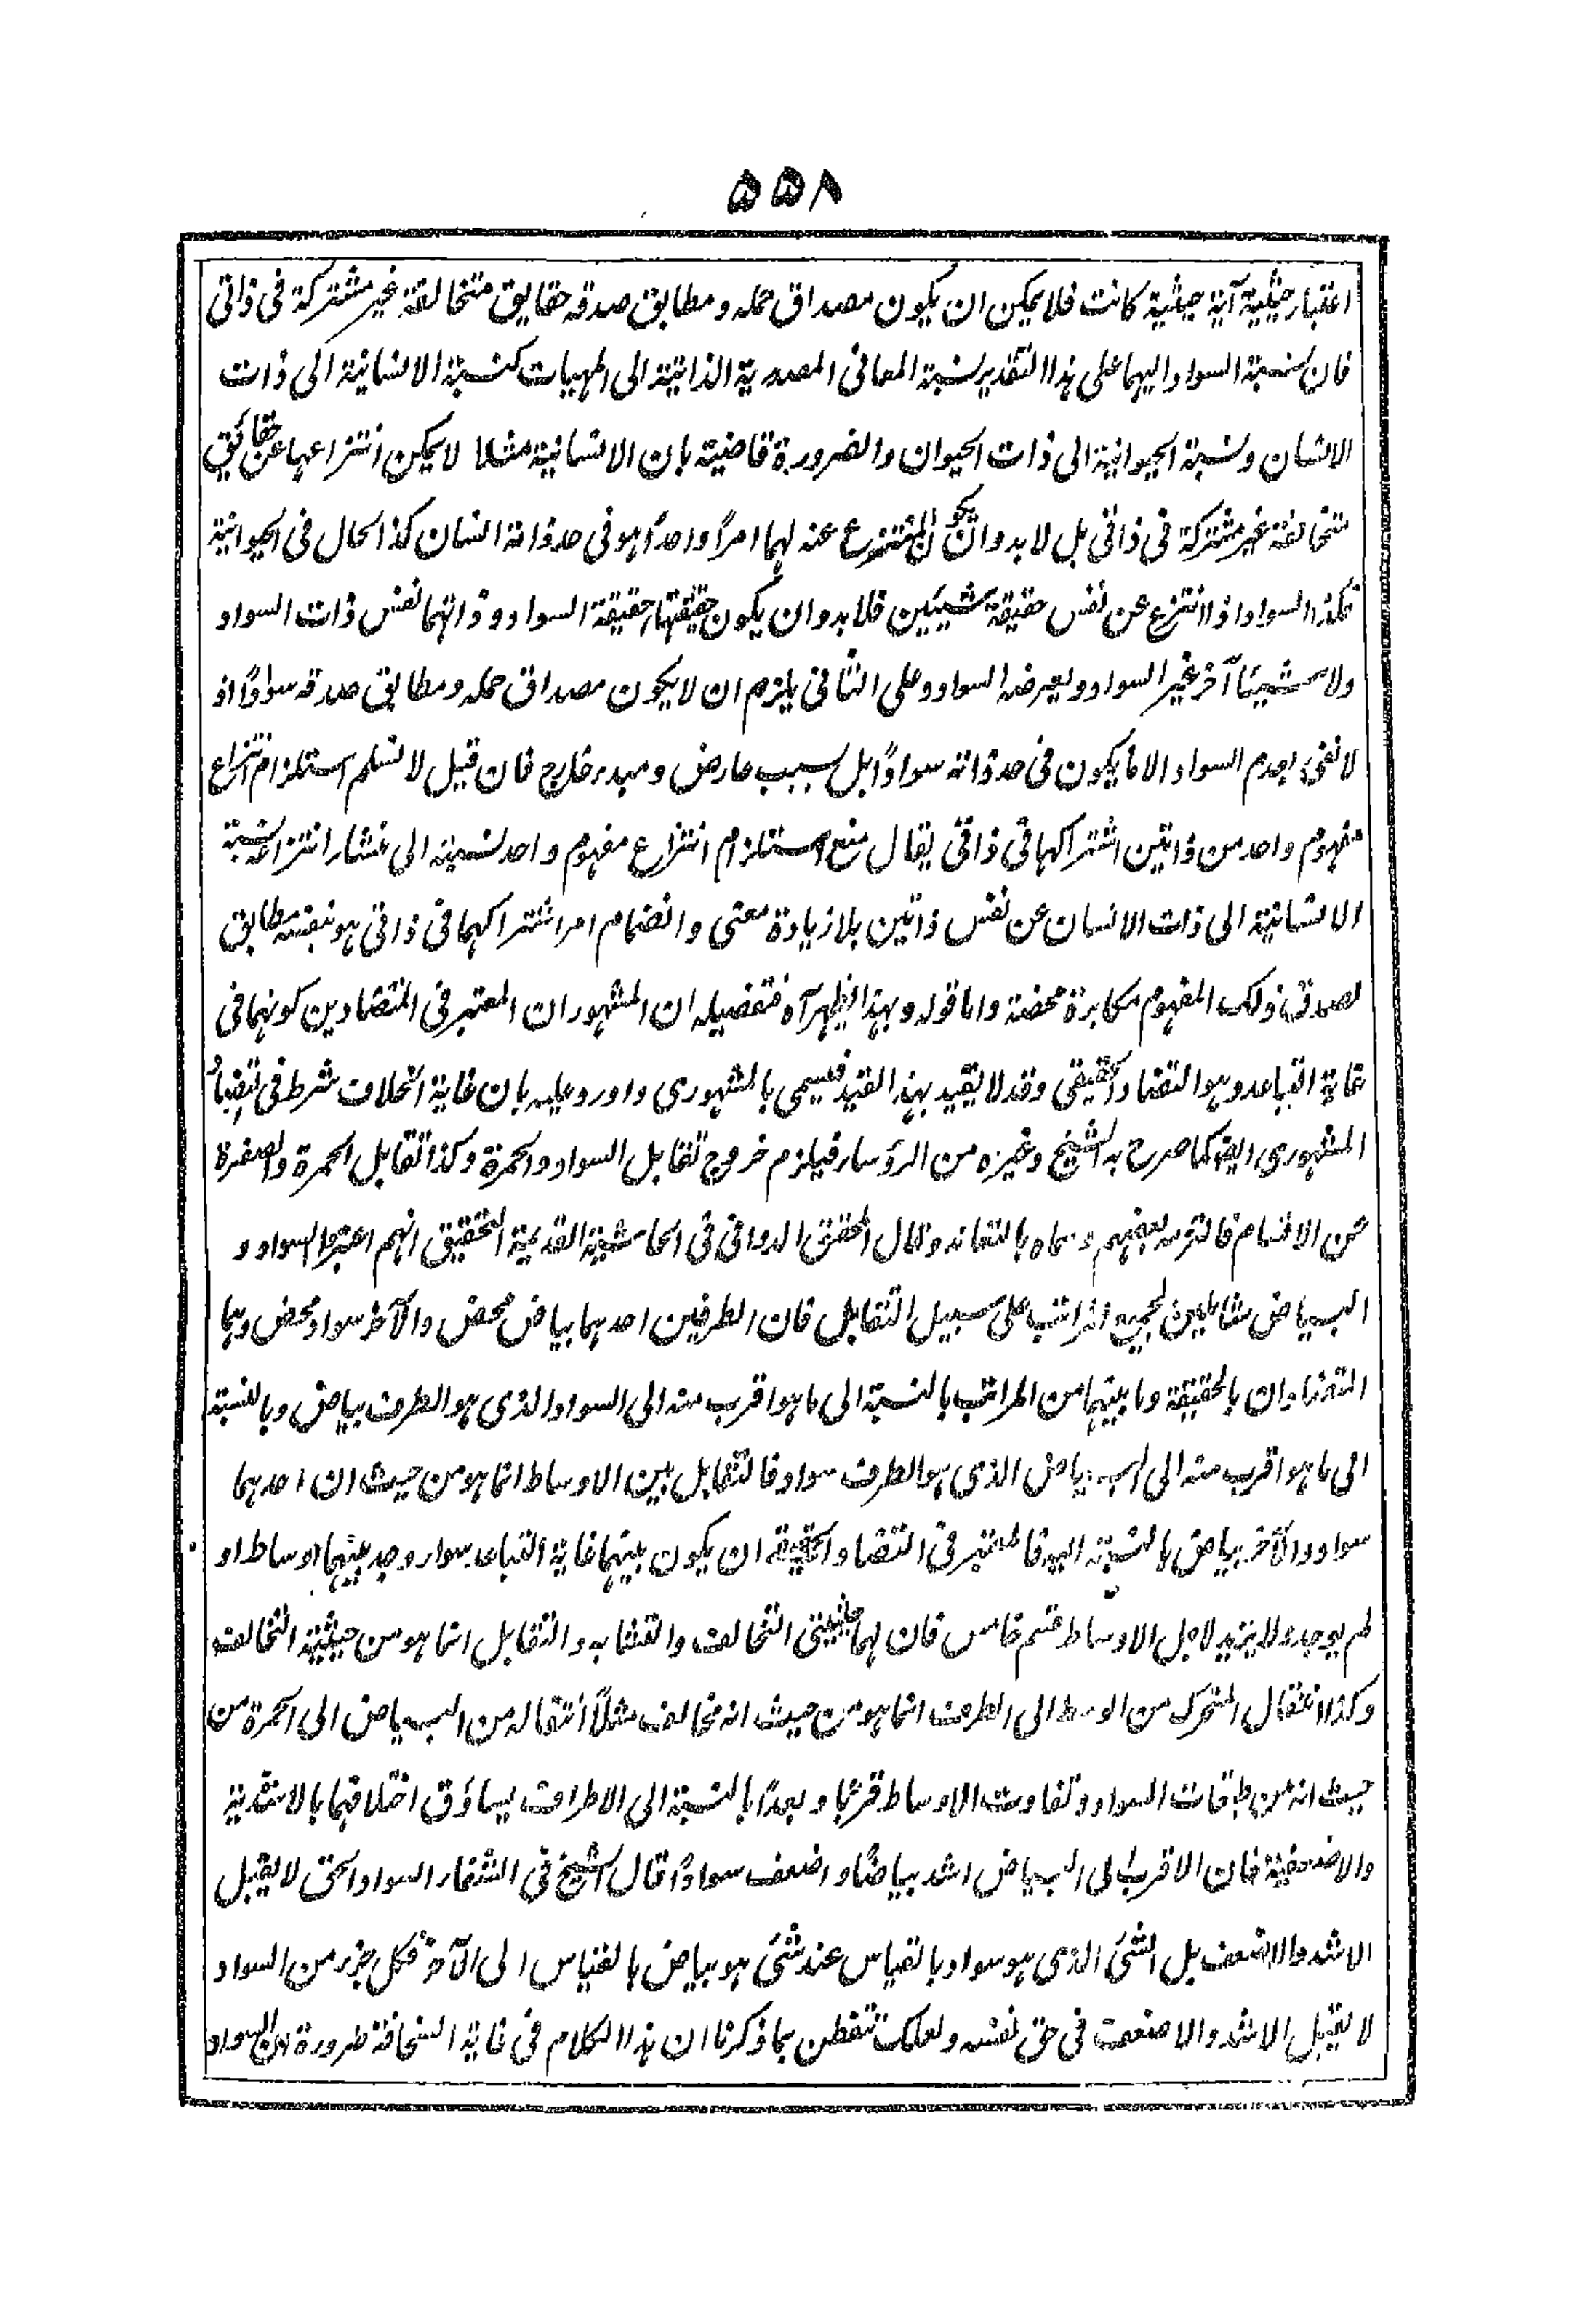 ۵۵۸
اعتبار حيثية آية حيثية كانت فلا يمكن ان يكون مصداق حمله و مطابق صدقه حقايق متخالفة غير مشتركة فى ذاتى
فان نسبة السواد اليهما على هذا التقدير نسبة المعانى المصدرية الذاتية الى المهيات كنسبة الانسانية الى ذات
الانسان ونسبة الحيوانية الى ذات الحيوان والضرورة قاضية بان الانسانية مثلا لا يمكن انتزاعها عن حقائق
متخالفة غير مشتركة فى ذاتى بل لا بد وان يكون المنتزع عنه لهما امرًا واحدًا هو فى حد ذاته انسان كذا الحال فى الحيوانية
فكذا السواد اذا انتزع عن نفس حقيقة شيئين فلا بد وان يكون حقيقتهما حقيقة السواد و ذاتهما نفس ذات السواد
ولا شيئا آخر غير السواد و يعرضه السواد و على الثانى يلزم ان لا يكون مصداق حمله و مطابق صدقه سوادًا اذ
لا نعنى بعدم السواد الا ما يكون فى حد ذاته سوادًا بل بسبب عارض و مبدء خارج فان قيل لا نسلم استلزام انتزاع
مفهوم واحد من ذاتين اشتراكهما فى ذاتى يقال منع استلزام انتزاع مفهوم واحد نسبته الى منشاء انتزاعه نسبة
الانسانية الى ذات الانسان عن نفس ذاتين بلا زيادة معنى و انضمام امر اشتراكهما فى ذاتى هو بنفسه مطابق
لصدق ذلك المفهوم مكابرة محضة واما قوله و بهذا يظهر آه فتفصيله ان المشهور ان المعتبر فى المتضادين كونهما فى
غاية التباعد وهو التضاد الحقيقى وقد لا يقيد بهذا القيد فيسمى بالمشهورى و اورد عليه بان غاية الخلاف شرط فى التضاد
المشهورى ايضا كما صرح به الشيخ وغيره من الرؤساء فيلزم خروج تقابل السواد و الحمرة وكذا تقابل الحمرة والصفرة
عن الاقسام فالتزمه بعضهم وسماه بالتعاند وقال المحقق الدوانى فى الحاشية القديمة التحقيق انهم اعتبروا السواد و
البياض شاملين لجميع المراتب على سبيل التقابل فان الطرفين احدهما بياض محض والآخر سواد محض وهما
المتضادان بالحقيقة وما بينهما من المراتب بالنسبة الى ما هو اقرب منه الى السواد الذى هو الطرف بياض و بالنسبة
الى ما هو اقرب منه الى البياض الذى هو الطرف سواد فالتقابل بين الاوساط انما هو من حيث ان احدهما
سواد والآخر بياض بالنسبة اليه فالمعتبر فى التضاد الحقيقة ان يكون بينهما غاية التباعد سواء وجد بينهما اوساط او
لم يوجد ولا يزيد لاجل الاوساط قسم خامس فان لهما حيثيتى التخالف والتشابه و التقابل انما هو من حيثية التخالف
وكذا انتقال المتحرك من الوسط الى الطرف انما هو من حيث انه مخالف مثلًا انتقاله من البياض الى الحمرة من
حيث انه من طبقات السواد و تفاوت الاوساط قربًا و بعدًا بالنسبة الى الاطراف يساوق اختلافهما بالاشدية
والاضعفية فان الاقرب الى البياض اشد بياضًا و اضعف سوادًا قال الشيخ فى الشفاء السواد الحق لا يقبل
الاشد والاضعف بل الشئ الذى هو سواد بالقياس عند شئ هو بياض بالقياس الى الآخر فكل جزء من السواد
لا يقبل الاشد والاضعف فى حق نفسه ولعلك تتفطن بما ذكرنا ان هذا الكلام فى غاية السخافة ضرورة ان السواد